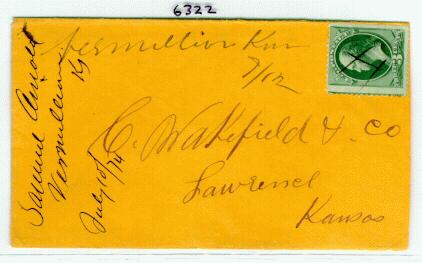 6322
Vermillion Kan
7/12
Samuel Arnold
Vermillion
Ks
July 10th
/74
C. Wakefield & Co
Lawrence
Kansas